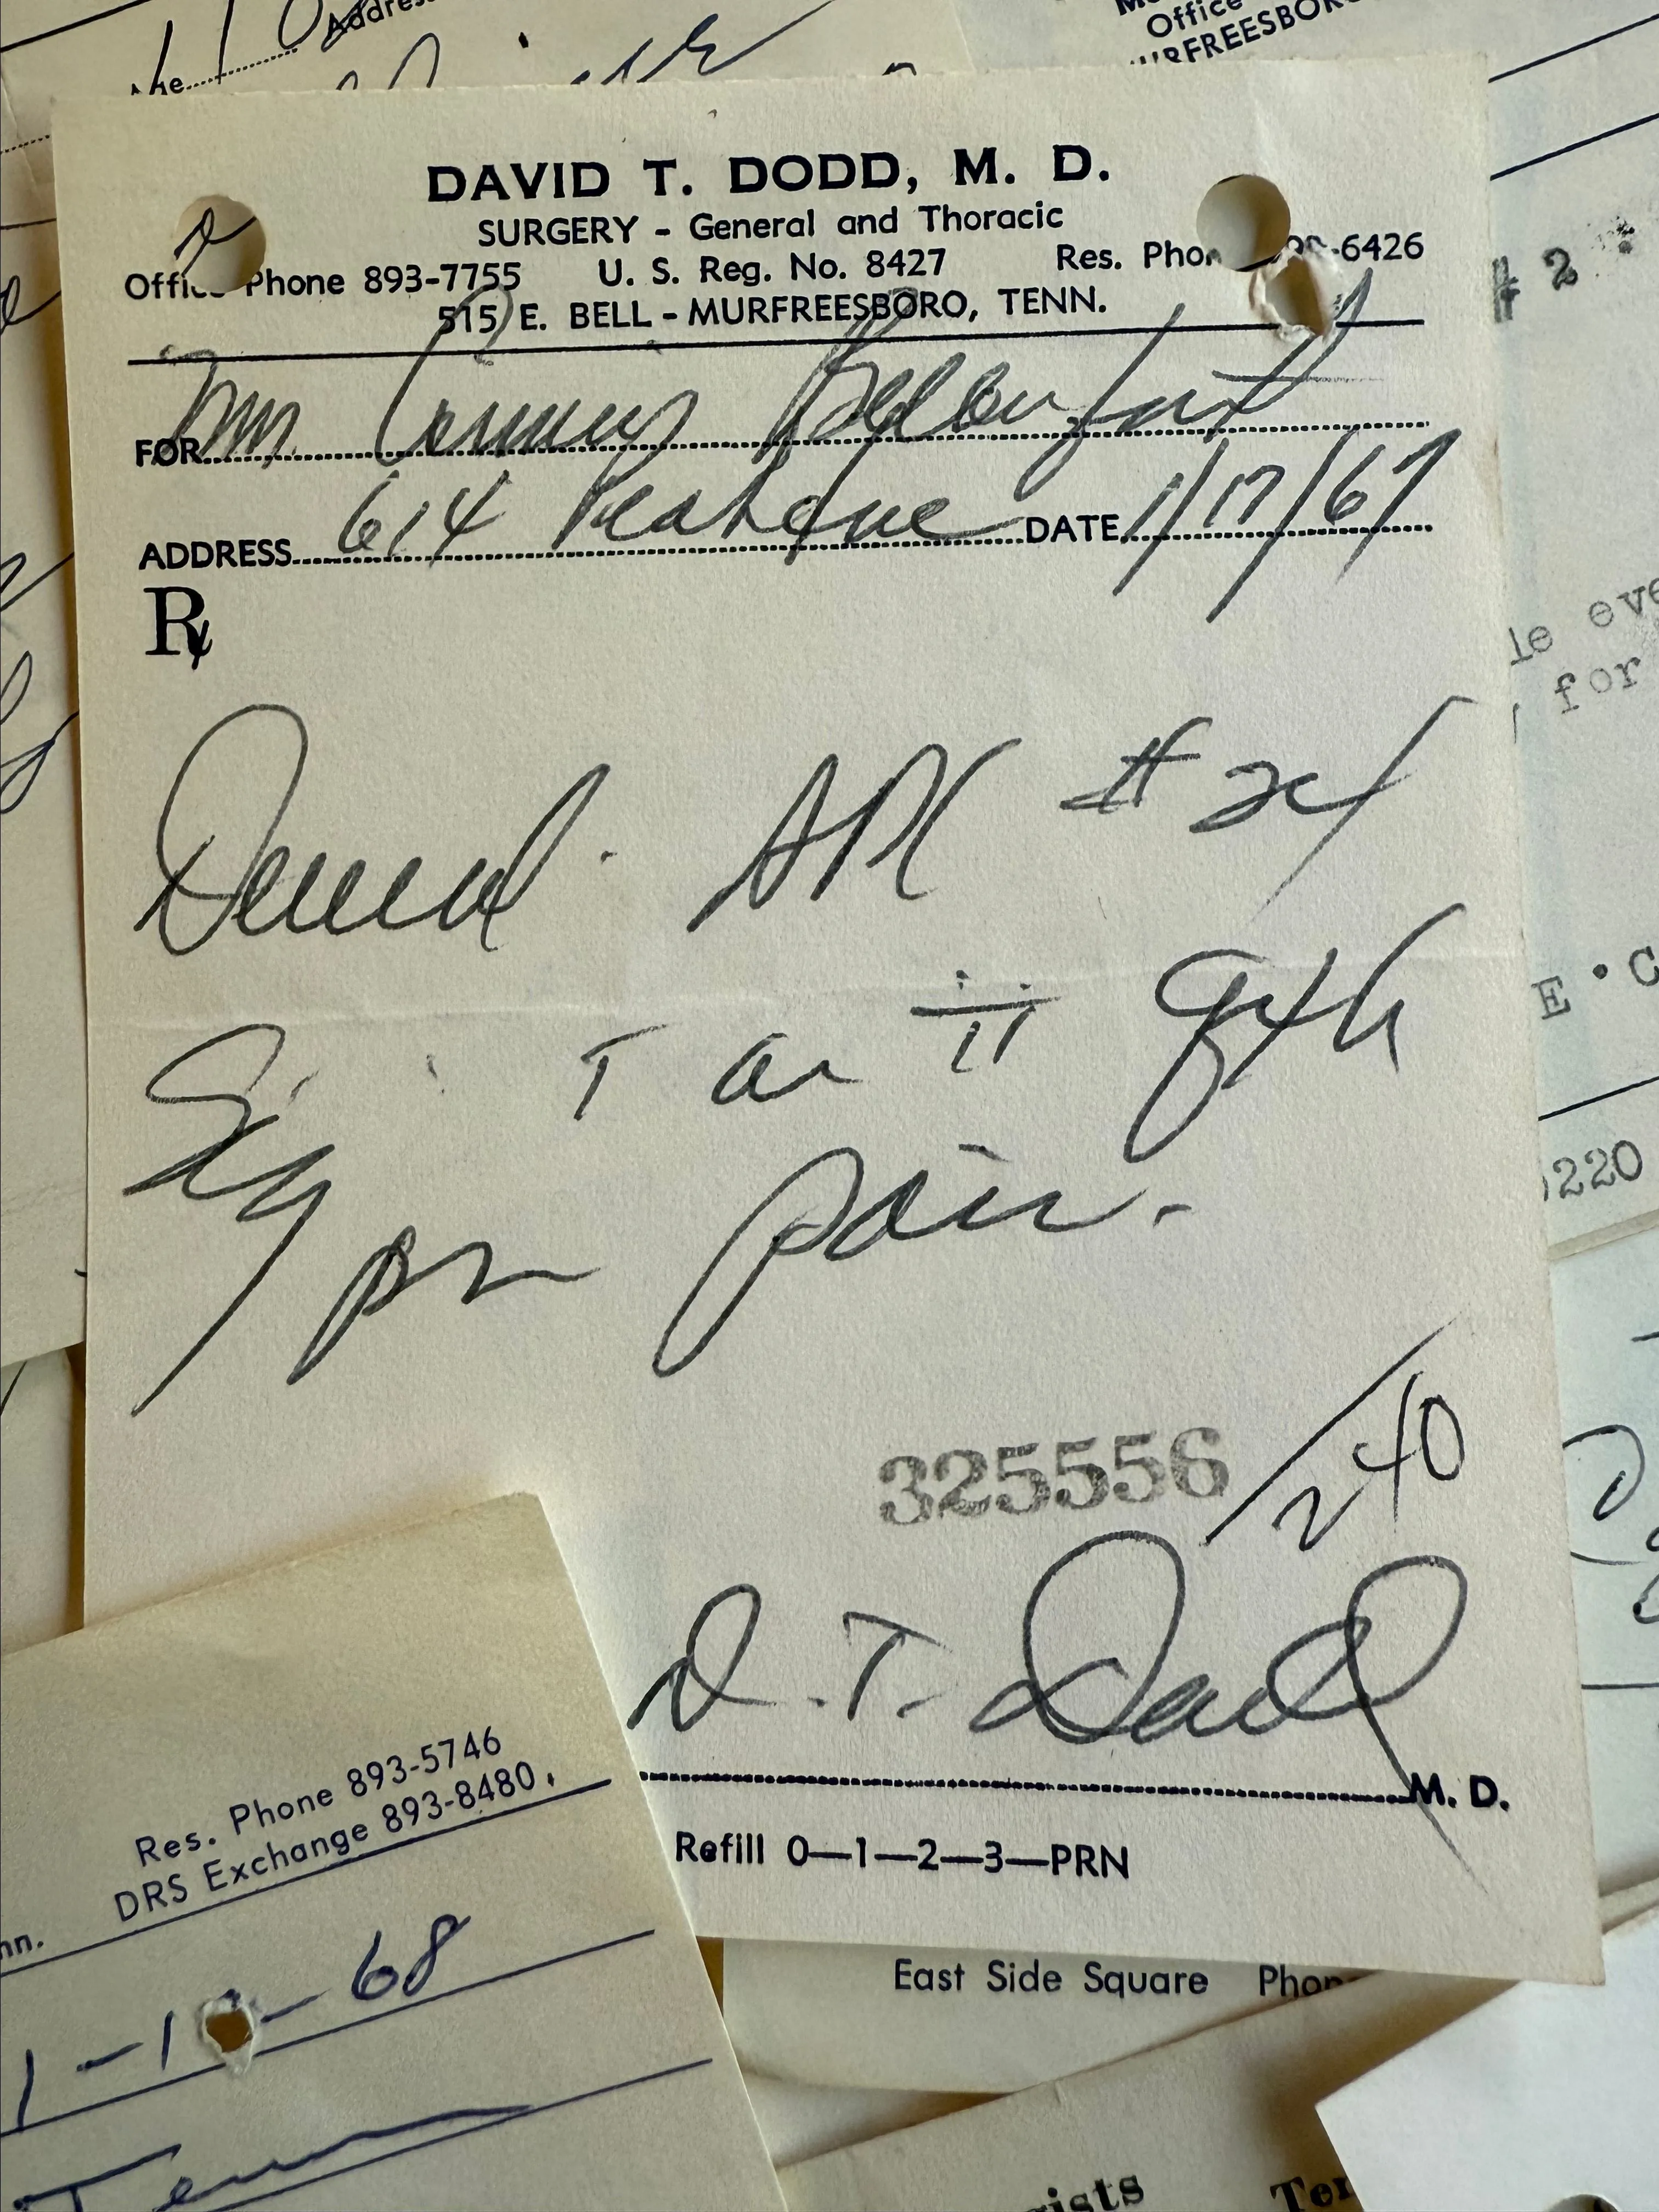 Address
Office
MURFREESBORO
DAVID T. DODD, M. D.
SURGERY - General and Thoracic
Office Phone 893-7755 U. S. Reg. No. 8427 Res. Phon -6426
515 E. BELL - MURFREESBORO, TENN.
FOR
ADDRESS 614 DATE 1/17/67
Rx
# 2
le eve
for
Demerol APC # 24
E • C
Sig: T or ii q4h
prn pain.
220
325556 / 240
D. T. Dodd
M. D.
Refill 0—1—2—3—PRN
Res. Phone 893-5746
DRS Exchange 893-8480
nn.
1-1 -68
East Side Square Phon
Tenn
gists Ter